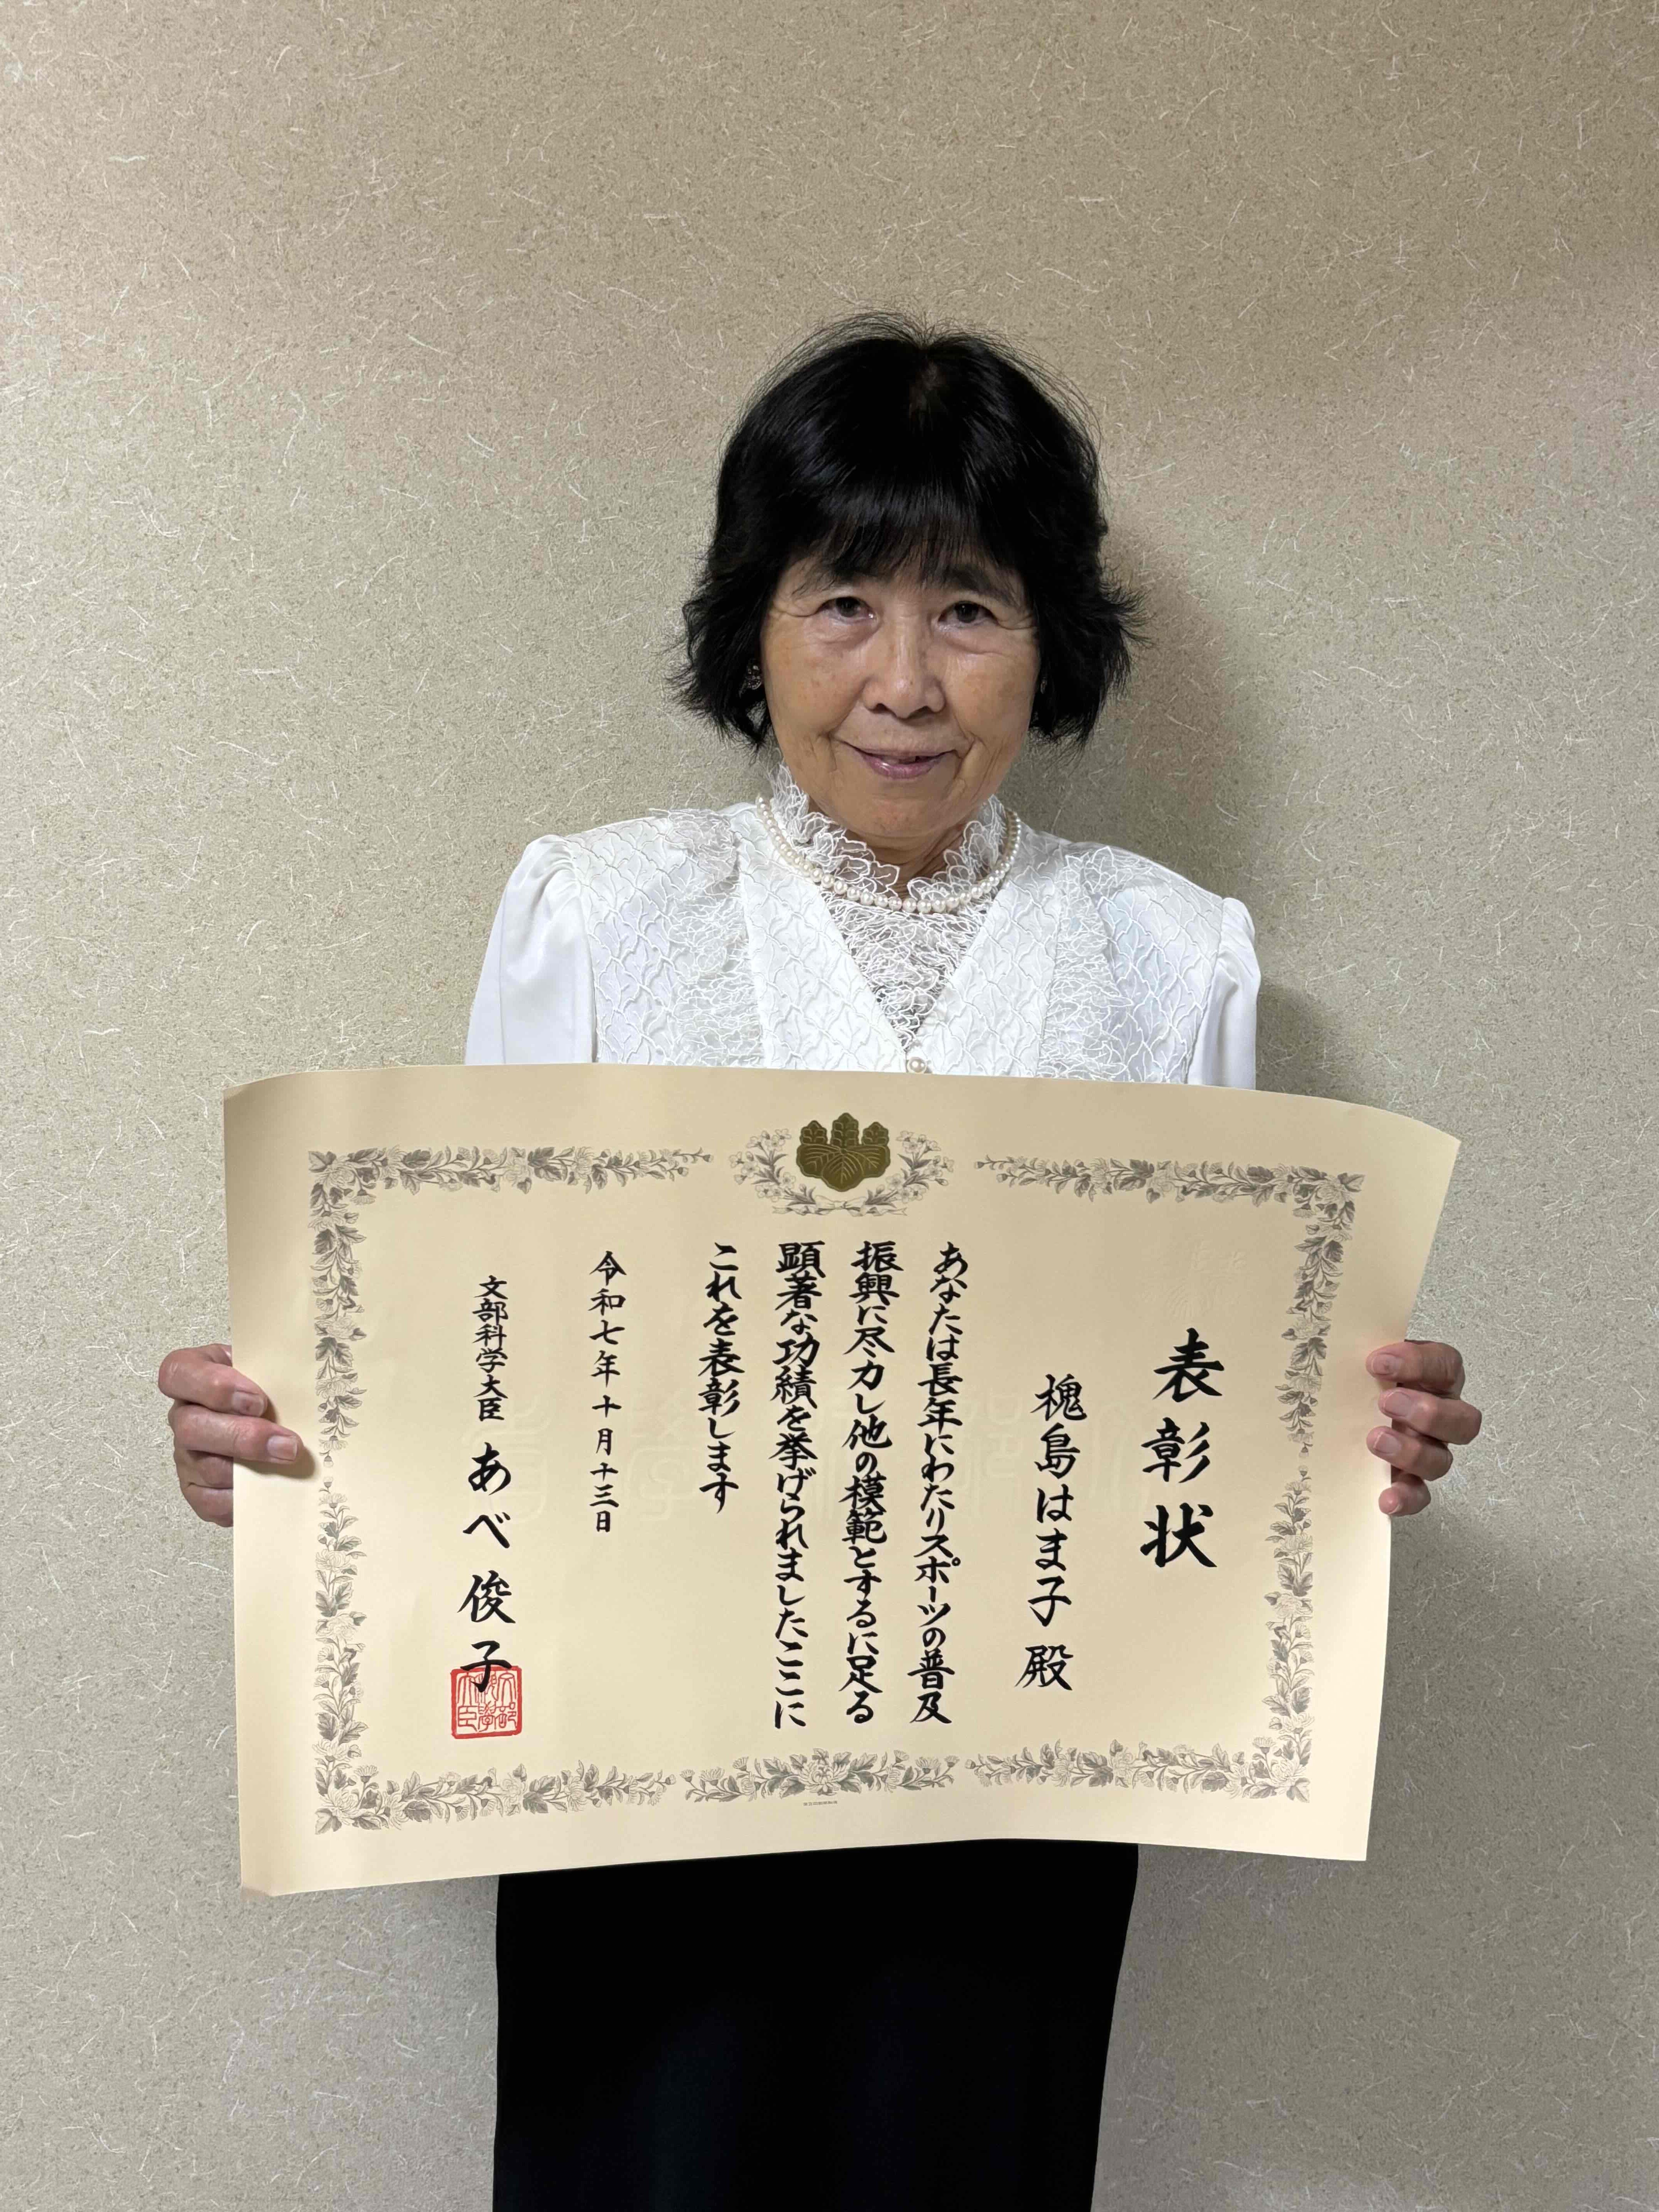 表彰状
槐島はま子 殿
あなたは長年にわたりスポーツの普及
振興に尽力し他の模範とするに足る
顕著な功績を挙げられましたここに
これを表彰します
令和七年十月十三日
文部科学大臣 あべ俊子